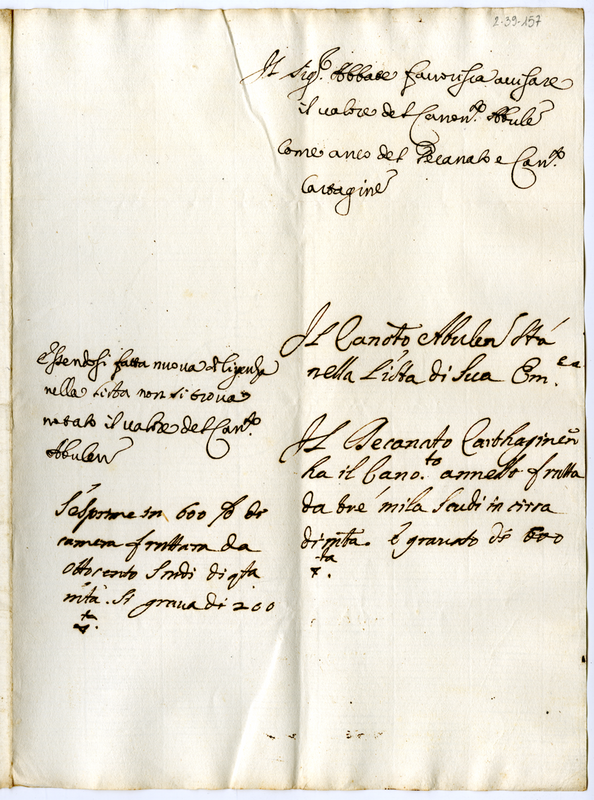 2-39-157
Il Sigr. Abbate favorisca avisare
il valore del Canonto. Abulen
come anco del Decanato e Canto.
Cartaginen
Il Canoto Abulen stà
nella Lista di Sua Em.za
Essendosi fatta nuova diligenza
nella Lista non si trova
notato il valore del Canto.
Abulen
Il Decanato Carthaginen
ha il Cano.to annesso frutta
da tre mila scudi in circa
di mta. è gravato di 600
S'esprime in 600 di
camera fruttara da
ottocento scudi di qta
mta. Si grava di 200